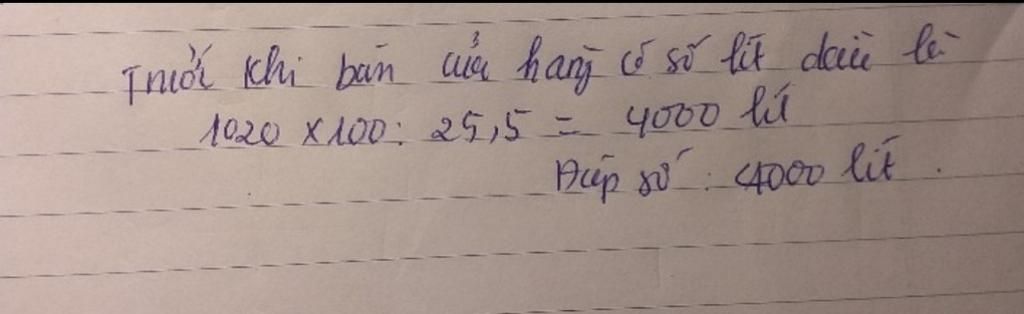 Trước khi bán cửa hàng có số lít dầu là
1020 x 100 : 25,5 = 4000 lít
Đáp số : 4000 lít .